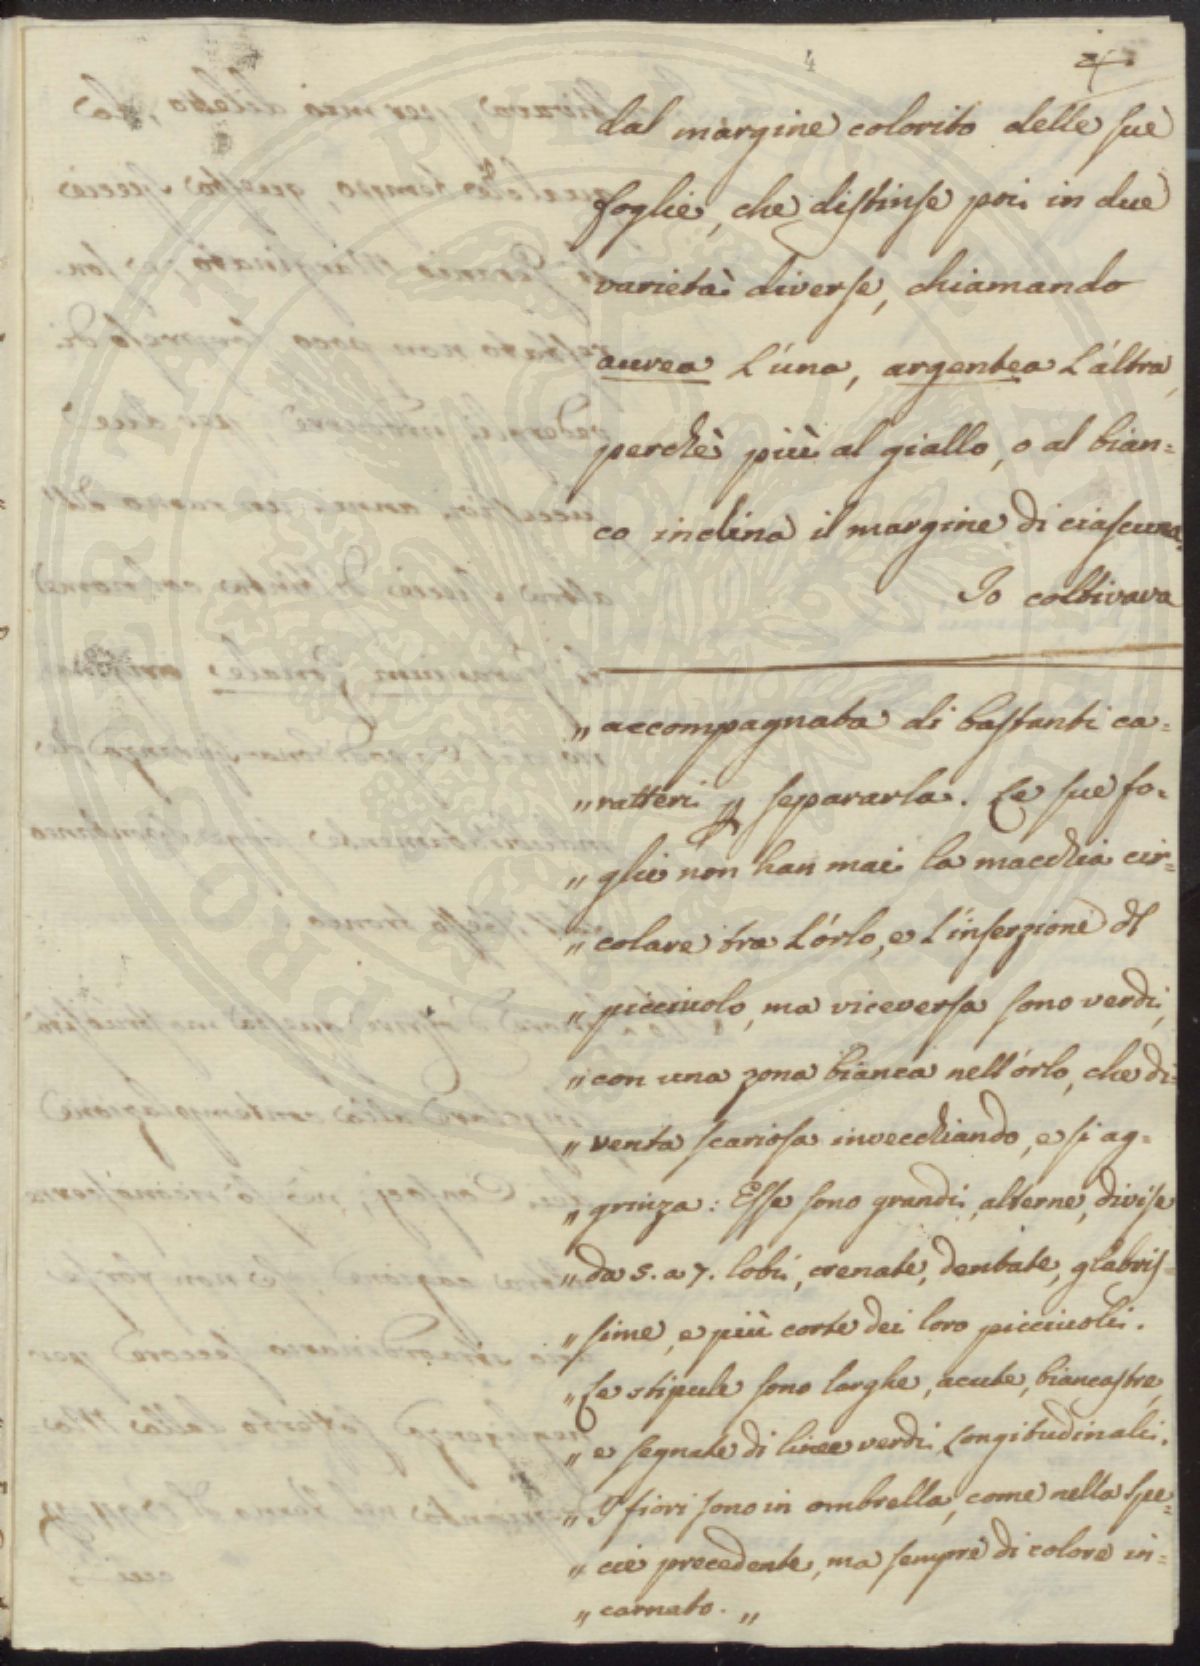 4
dal margine colorito delle sue
foglie, che distinse poi in due
varietà diverse, chiamando
aurea l'una, argentea l'altra,
perchè più al giallo, o al bian=
co inclina il margine di ciascuna.
Io coltivava
„ accompagnata di bastanti ca=
„ ratteri p separarla. Le sue fo=
„ glie non han mai la macchia cir=
„ colare tra l'orlo, e l'inserzione dl
„ picciuolo, ma viceversa sono verdi,
„ con una zona bianca nell'orlo, che di=
„ venta scariosa invecchiando, e si ag=
„ grinza: Esse sono grandi, alterne, divise
„ da 5. a 7. lobi, crenate, dentate, glabris=
„ sime, e più corte dei loro picciuoli.
„ Le stipule sono larghe, acute, biancastre,
„ e segnate di linee verdi longitudinali.
„ I fiori sono in ombrella, come nella spe=
„ cie precedente, ma sempre di colore in=
„ carnato. „